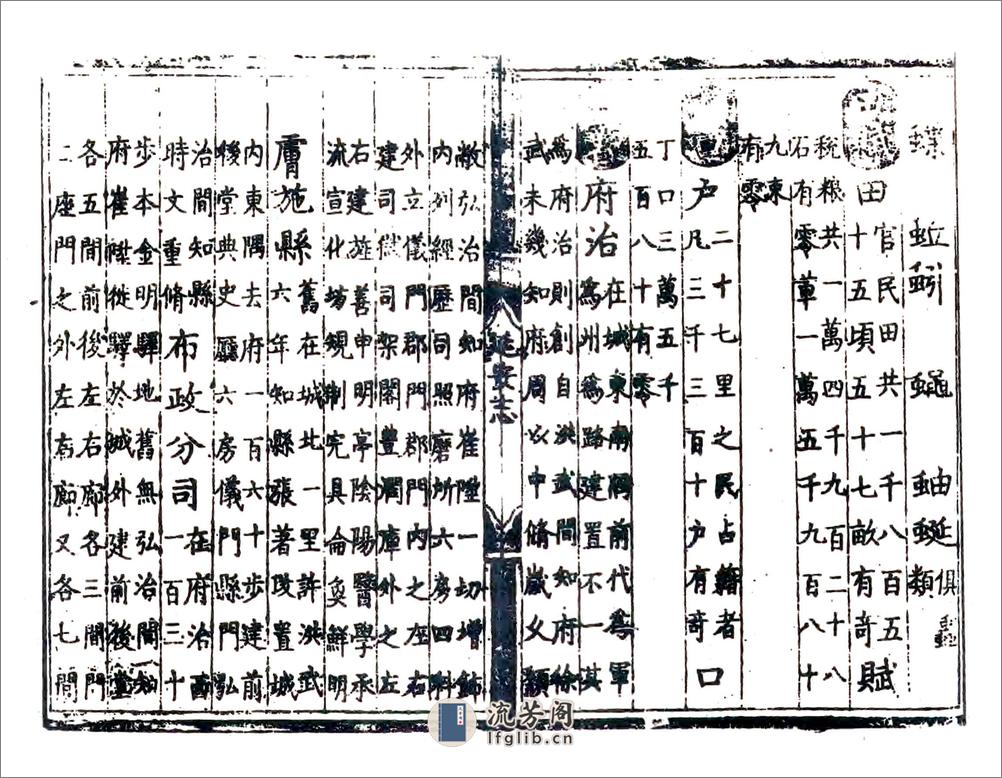 蝶 蚯蚓 蠅 蚰蜒俱蟲類
田官民田共一千八百五
十五頃五十七畝有奇賦
稅粮共一萬四千九百二十八
石有零草一萬五千九百八十
九束
有零
戶二十七里之民占籍者
凡三千三百十戶有奇口
丁口三萬五千
五百八十有零
府治在城東南隅前代為軍
為州為路建置不一其
為府治則創自洪武間知府徐
武未幾知府周以中脩歲久頹
延安志
敝弘治間知府崔陞一切增飾
內列經歷司照磨所六房四科
外立儀門郡門郡門內之左右
建司獄司架閣豐濶庫外之左
右建旌善申明亭陰陽醫學承
流宣化塲規制完具侖奐鮮明
膚施縣舊在城北一里許洪武
六年知縣張著改置城
內東隅去府一百六十步建前
後堂典史廳六房儀門縣門弘
治間知縣
時文重脩布政分司在府治西
一百三十
步本金明驛地舊無弘治間知
府崔陞徙驛於城外建前後堂
各五間前後左右廊各三間門
二座門之外左右廊又各七間
流芳阁
lfglib.cn